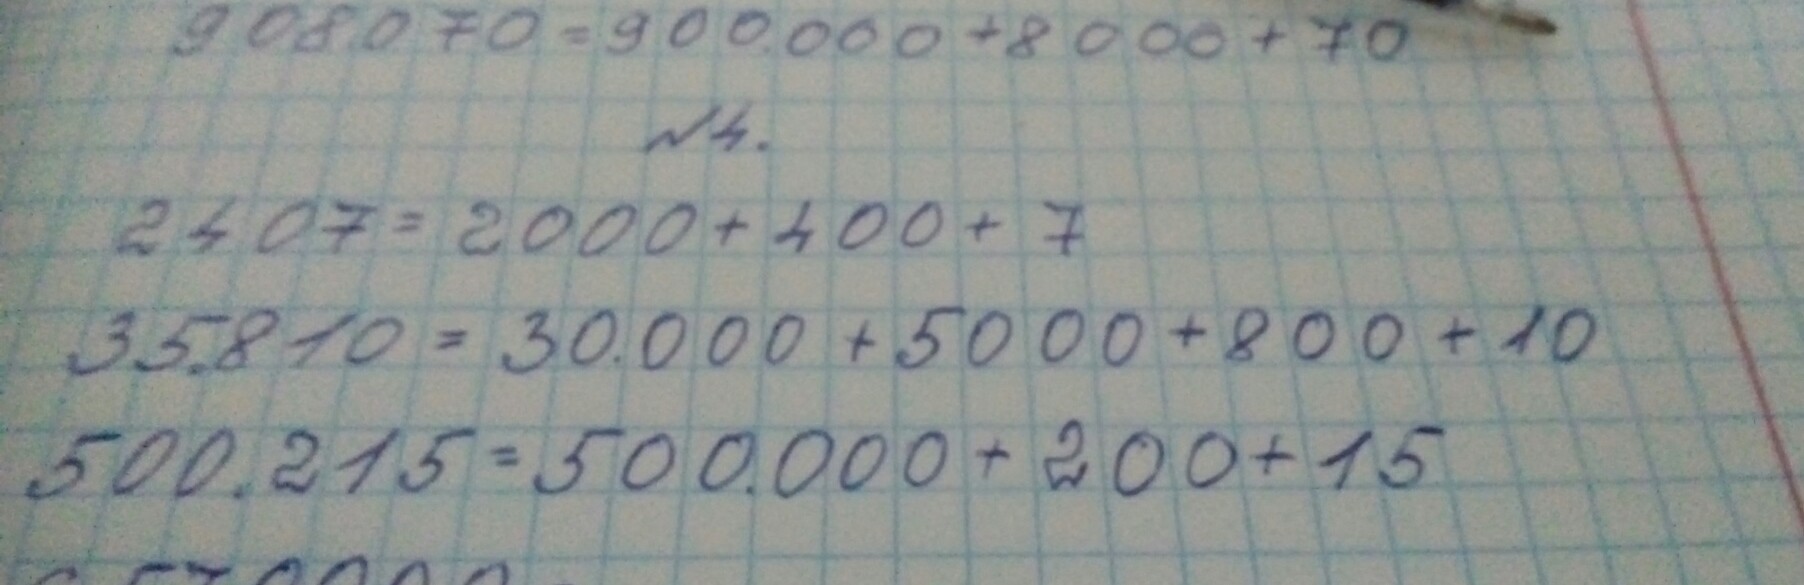 908070=900.000+8000+70
№4.
2407=2000+400+7
35.810=30.000+5000+800+10
500.215=500.000+200+15